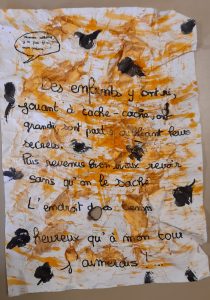 Des enfants y ont ri,
joué à cache-cache, ont
grandi, sont partis oubliant leurs
secrets.
Puis revenus bien vieux revoir
sans qu'on le sache
L'endroit
heureux qu'à mon tour
j'aimerais !